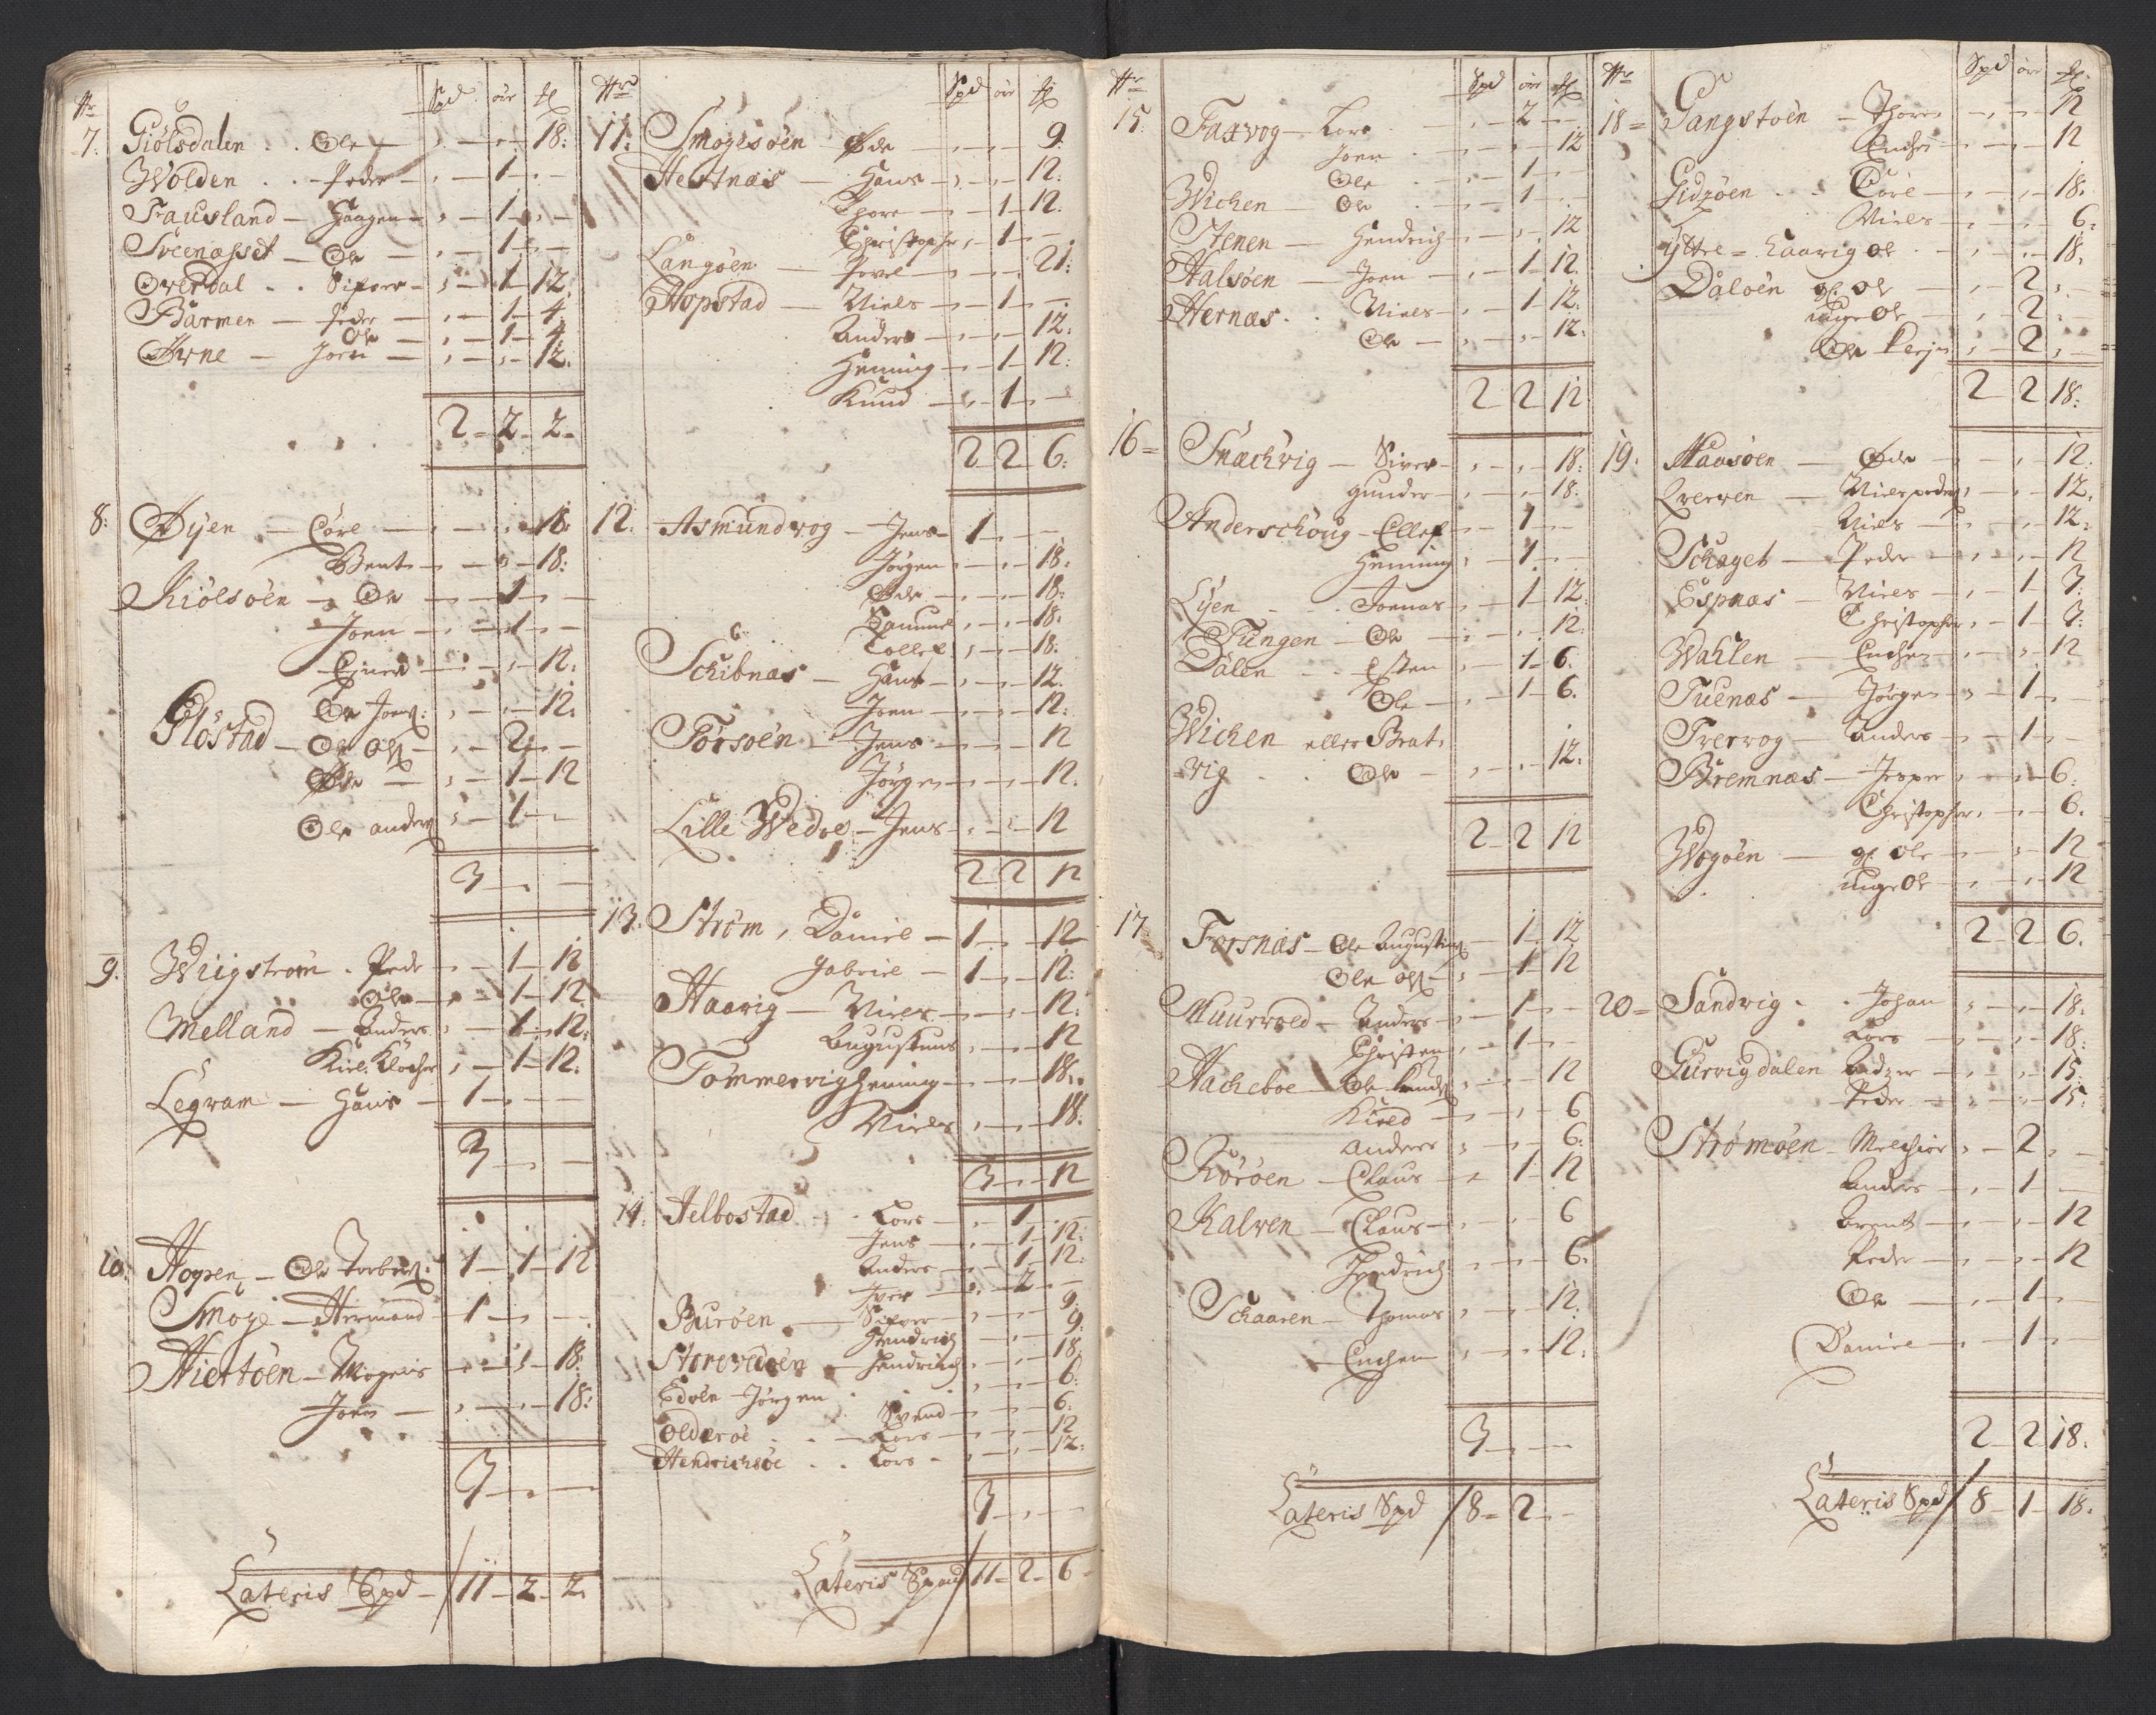 Nr Spd ór
7. Giólsdalen . . Ole - - 18:
Wólden . . Peder - 1 -
Fausland - Haagen - 1 -
Sveenasset - Ole - 1 -
Overdal . . Sifver - 1 - 12.
Barmen - Peder - 1 - 4.
Ole - 1 - 4
Arne - Joen - - 12.
2 - 2 - 2 -
8: Dyen - Corl - - 18:
Bent - - 18:
Kiólsóen - Ole - 1 -
Joen - 1 -
Einer - - 12:
Ole Joens: - - 12.
Glóstad - Ole Ols: - 2 -
Ode - 1 - 12
Ole anders - 1 -
3 - -
9. Wiigstrøm . Peder - 1 - 12
Ole - 1 - 12.
Melland - Anders - 1 - 12.
Kiel Klocher - 1 - 12.
Legram - Hans - 1 - -
3 - -
10. Hopen - Ole Torbers: 1 - 1 - 12
Smøge - Hermand - 1 - -
Hiertóen - Mogens - 1 - 18:
Joen - - 18:
3 - -
Lateris Spd - 11 - 2 - 2.
Nr Spd ór
11. Smøgesøen Ode - - 9.
Hestnæs - Hans - - 12.
Thore - 1 - 12.
Christopher - 1 -
Langøen - Povel - - 21:
Hopstad - Niels - 1 -
Anders - - 12:
Henning - 1 - 12:
Knud - 1 -
2 2 6:
12. Asmundvog - Jens - 1 - -
Jórgen - - 18.
Ode - - 18:
Samuel - - 18.
Tollef - - 18.
Schibnæs - Hans - - 12.
Joen - - 12:
Tórsøen - Jens - - 12
Jórgen - - 12.
Lille Wedøe - Jens - - 12
2 2 12
13. Strøm, Daniel - 1 - - 12
Gabriel - 1 - - 12:
Haavig - Niels - - 12:
Augustinus - - 12
Tømmervig Hening - - 18.
Niels - - 18.
3 - - 12
14. Helbostad - Lors - 1 -
Jens - 1 - 12:
Anders - 1 - 12:
Iver - 2 -
Burøen - Sifver - - 9.
Hendrich - - 9.
Storevedøen - Hendrich - - 18
Edøen - Jørgen - - 6.
Svend - - 6.
Oldærøe - Lors - - 12
Hendrichsøe . . Lors - - 12.
3 - -
Lateris Spd 11 - 2 - 6 -
Nr Spd ór
15. Faxvog - Lors - 2 -
Joen - - 12
Ole - 1 -
Wichen - Ole - 1 -
Stenen - Hendrich - - 12
Halsøen - Joen - 1 - 12.
Hernæs . . Niels - 1 - 12.
Ole - - 12.
2 2 12
16 = Snæchvig - Siver - - 18:
Gunder - - 18:
Anderschoug - Ellef - 1 -
Henning - 1 -
Lyen - Joenas - 1 - 12.
Tungen - Ole - - 12.
Dalen - Esten - 1 - 6.
Ole - 1 - 6.
Wichen eller Brat-
vig . . Ole - - 12.
2 - 2 12
17. Forsnæs - Ole Augustins: - 1 - 12
Ole Ols: - 1 - 12
Muurvold - Anders - 1 -
Christen - 1 -
Hacheboe - Ole - - 12
- - 6
Anders - - 6.
Rørøen - Claus - 1 - 12
Kalven - Claus - - 6
Hendrich - - 6.
Schaaren - Thomas - - 12.
Enchen - - 12.
3 - -
Lateris Spd / 8 = 2 - -
Nr Spd ór
18 = Gangstøen - Thore - - 12
Enche - - 12
Gidzøen . . Corl - - 18.
Niels - - 6.
Yttre = Haavig Ole - - 18.
Daløen gl: Ole - 2 -
unge Ole - 2 -
Ole - 2 -
2 2 18:
19. Maasøen - Ode - - 12:
Qverven - Niels peders: - - 12.
Niels - - 12.
Schaget - Peder - - 12
Espnæs - Niels - 1 - 3.
Christopher - 1 - 3:
Wahlen - Enchen - - 12
Tuenæs - Jørgen - 1 -
Tvervog - Anders - 1 -
Bremnæs - Jesper - - 6.
Christopher - - 6.
Wogøen - gl: Ole - - 12
unge Ole - - 12
2 - 2 - 6.
20 = Sandvig . . Johan - - 18.
Lors - - 18:
Gurvigdalen - - 15.
Peder - - 15.
Strømøen - Melchior - 2 -
Anders - 1 -
Brent - - 12
Peder - - 12
Ole - 1 -
Daniel - 1 -
2 - 2 18.
Lateris Spd / 8 - 1 - 18.